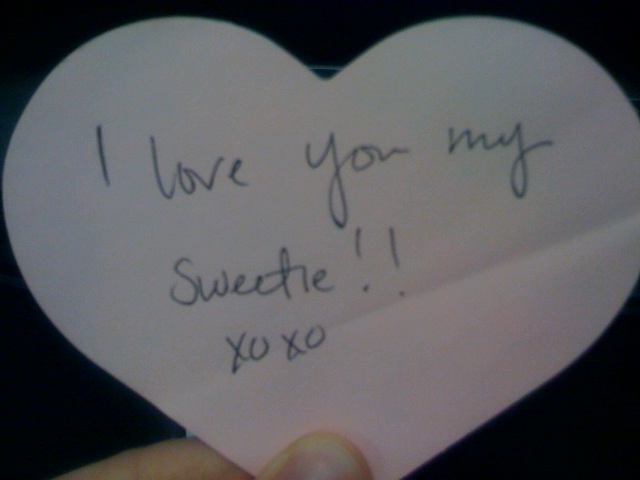 I love you my
sweetie!!
xoxo